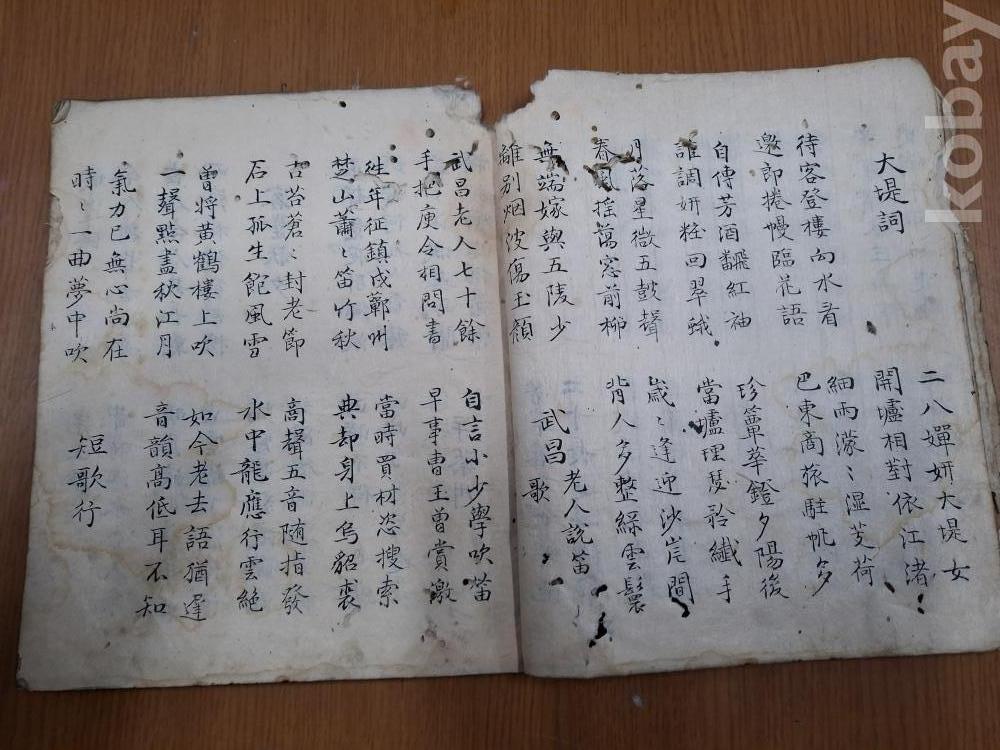 大堤詞
二八嬋妍大堤女
開壚相對依江渚
待客登樓向水看
邀郎捲幔臨花語
細雨濛〻濕芰荷
巴東商旅駐帆多
自傳芳酒飜紅袖
誰調妍粧回翠蛾
珍簟華鐙夕陽後
當壚理瑟矜纖手
月落星微五鼓聲
春風搖蕩窓前柳
歲〻逢迎沙岸間
背人多整綠雲鬟
無端嫁與五陵少
離別烟波傷玉顏
武昌老人說笛
歌
武昌老人七十餘
手把庾令相問書
自言小少學吹笛
早事曹王曾賞激
往年征鎮戍蘄州
楚山蕭〻笛竹秋
當時買材恣搜索
典却身上烏貂裘
古苔蒼〻封老節
石上孤生飽風雪
高聲五音随指發
水中龍應行雲絕
曾將黃鶴樓上吹
一聲點盡秋江月
如今老去語猶遲
音韻高低耳不知
氣力已無心尚在
時〻一曲夢中吹
短歌行
kobay